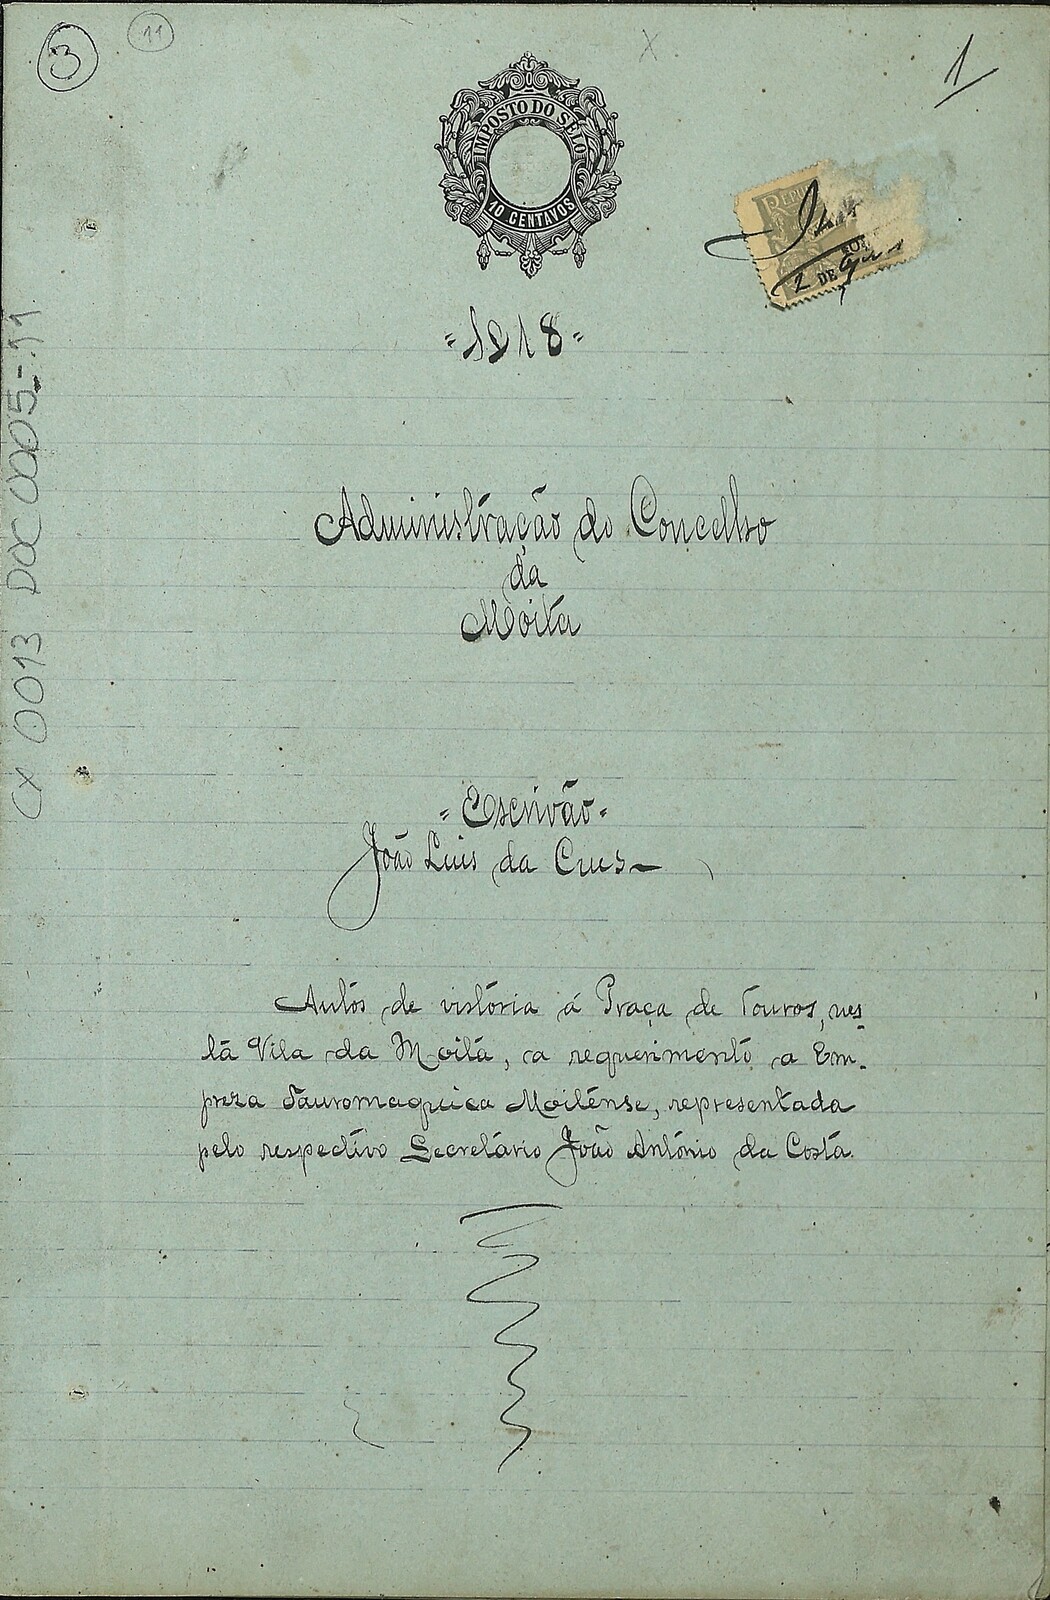 3
11
X
1
IMPOSTO DO SELO
10 CENTAVOS
REPU
2 DE
=1918=
CX 0013 DOC 0005-11
Administração do Concelho
da
Moita
=Escrivão=
João Luis da Crus
Autos de vistória á Praça de Touros, nes-
ta Vila da Moita, a requerimento a Em-
preza Tauromaquica Moitense, representada
pelo respectivo Secretário João António da Costa.